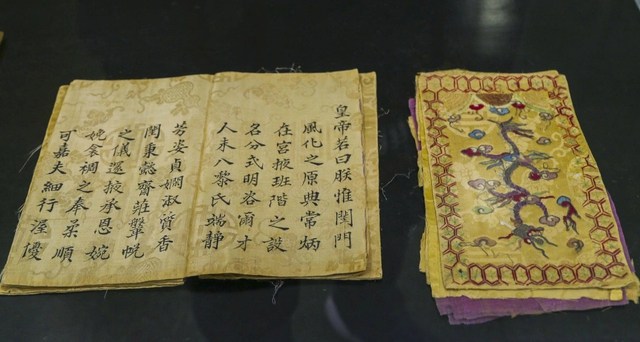 皇帝若曰朕惟閨門
風化之原典常炳
在宮掖班階之設
名分式明咨爾才
人未入黎氏端靜
芳姿貞嫻淑質香
閨秉懿齋莊鞶帨
之儀選掖承恩婉
娩衾裯之奉柔順
可嘉夫細行優